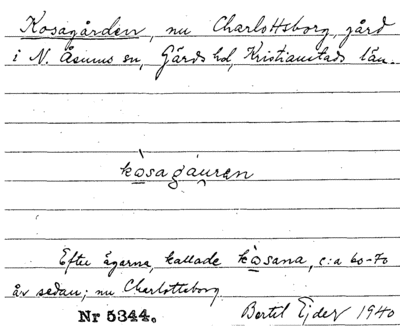 Kosagården, nu Charlottsborg, gård
i N. Åsums sn, Gärds hd, Kristianstads län.
kòsagáuren
Efter ägarna, kallade kòsana, c:a 60-70
år sedan; nu Charlottsborg.
Nr 5344. Bertil Ejder 1940